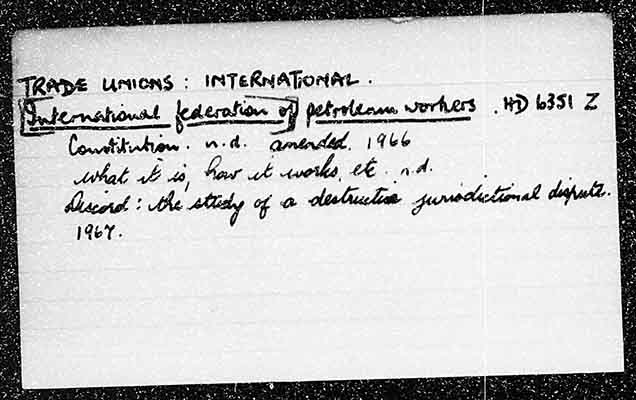 TRADE UNIONS : INTERNATIONAL.
[International federation of] petroleum workers. HD 6351 Z
Constitution. n.d. amended. 1966
what it is, how it works, etc. n.d.
Discord: the study of a destructive jurisdictional dispute.
1967.